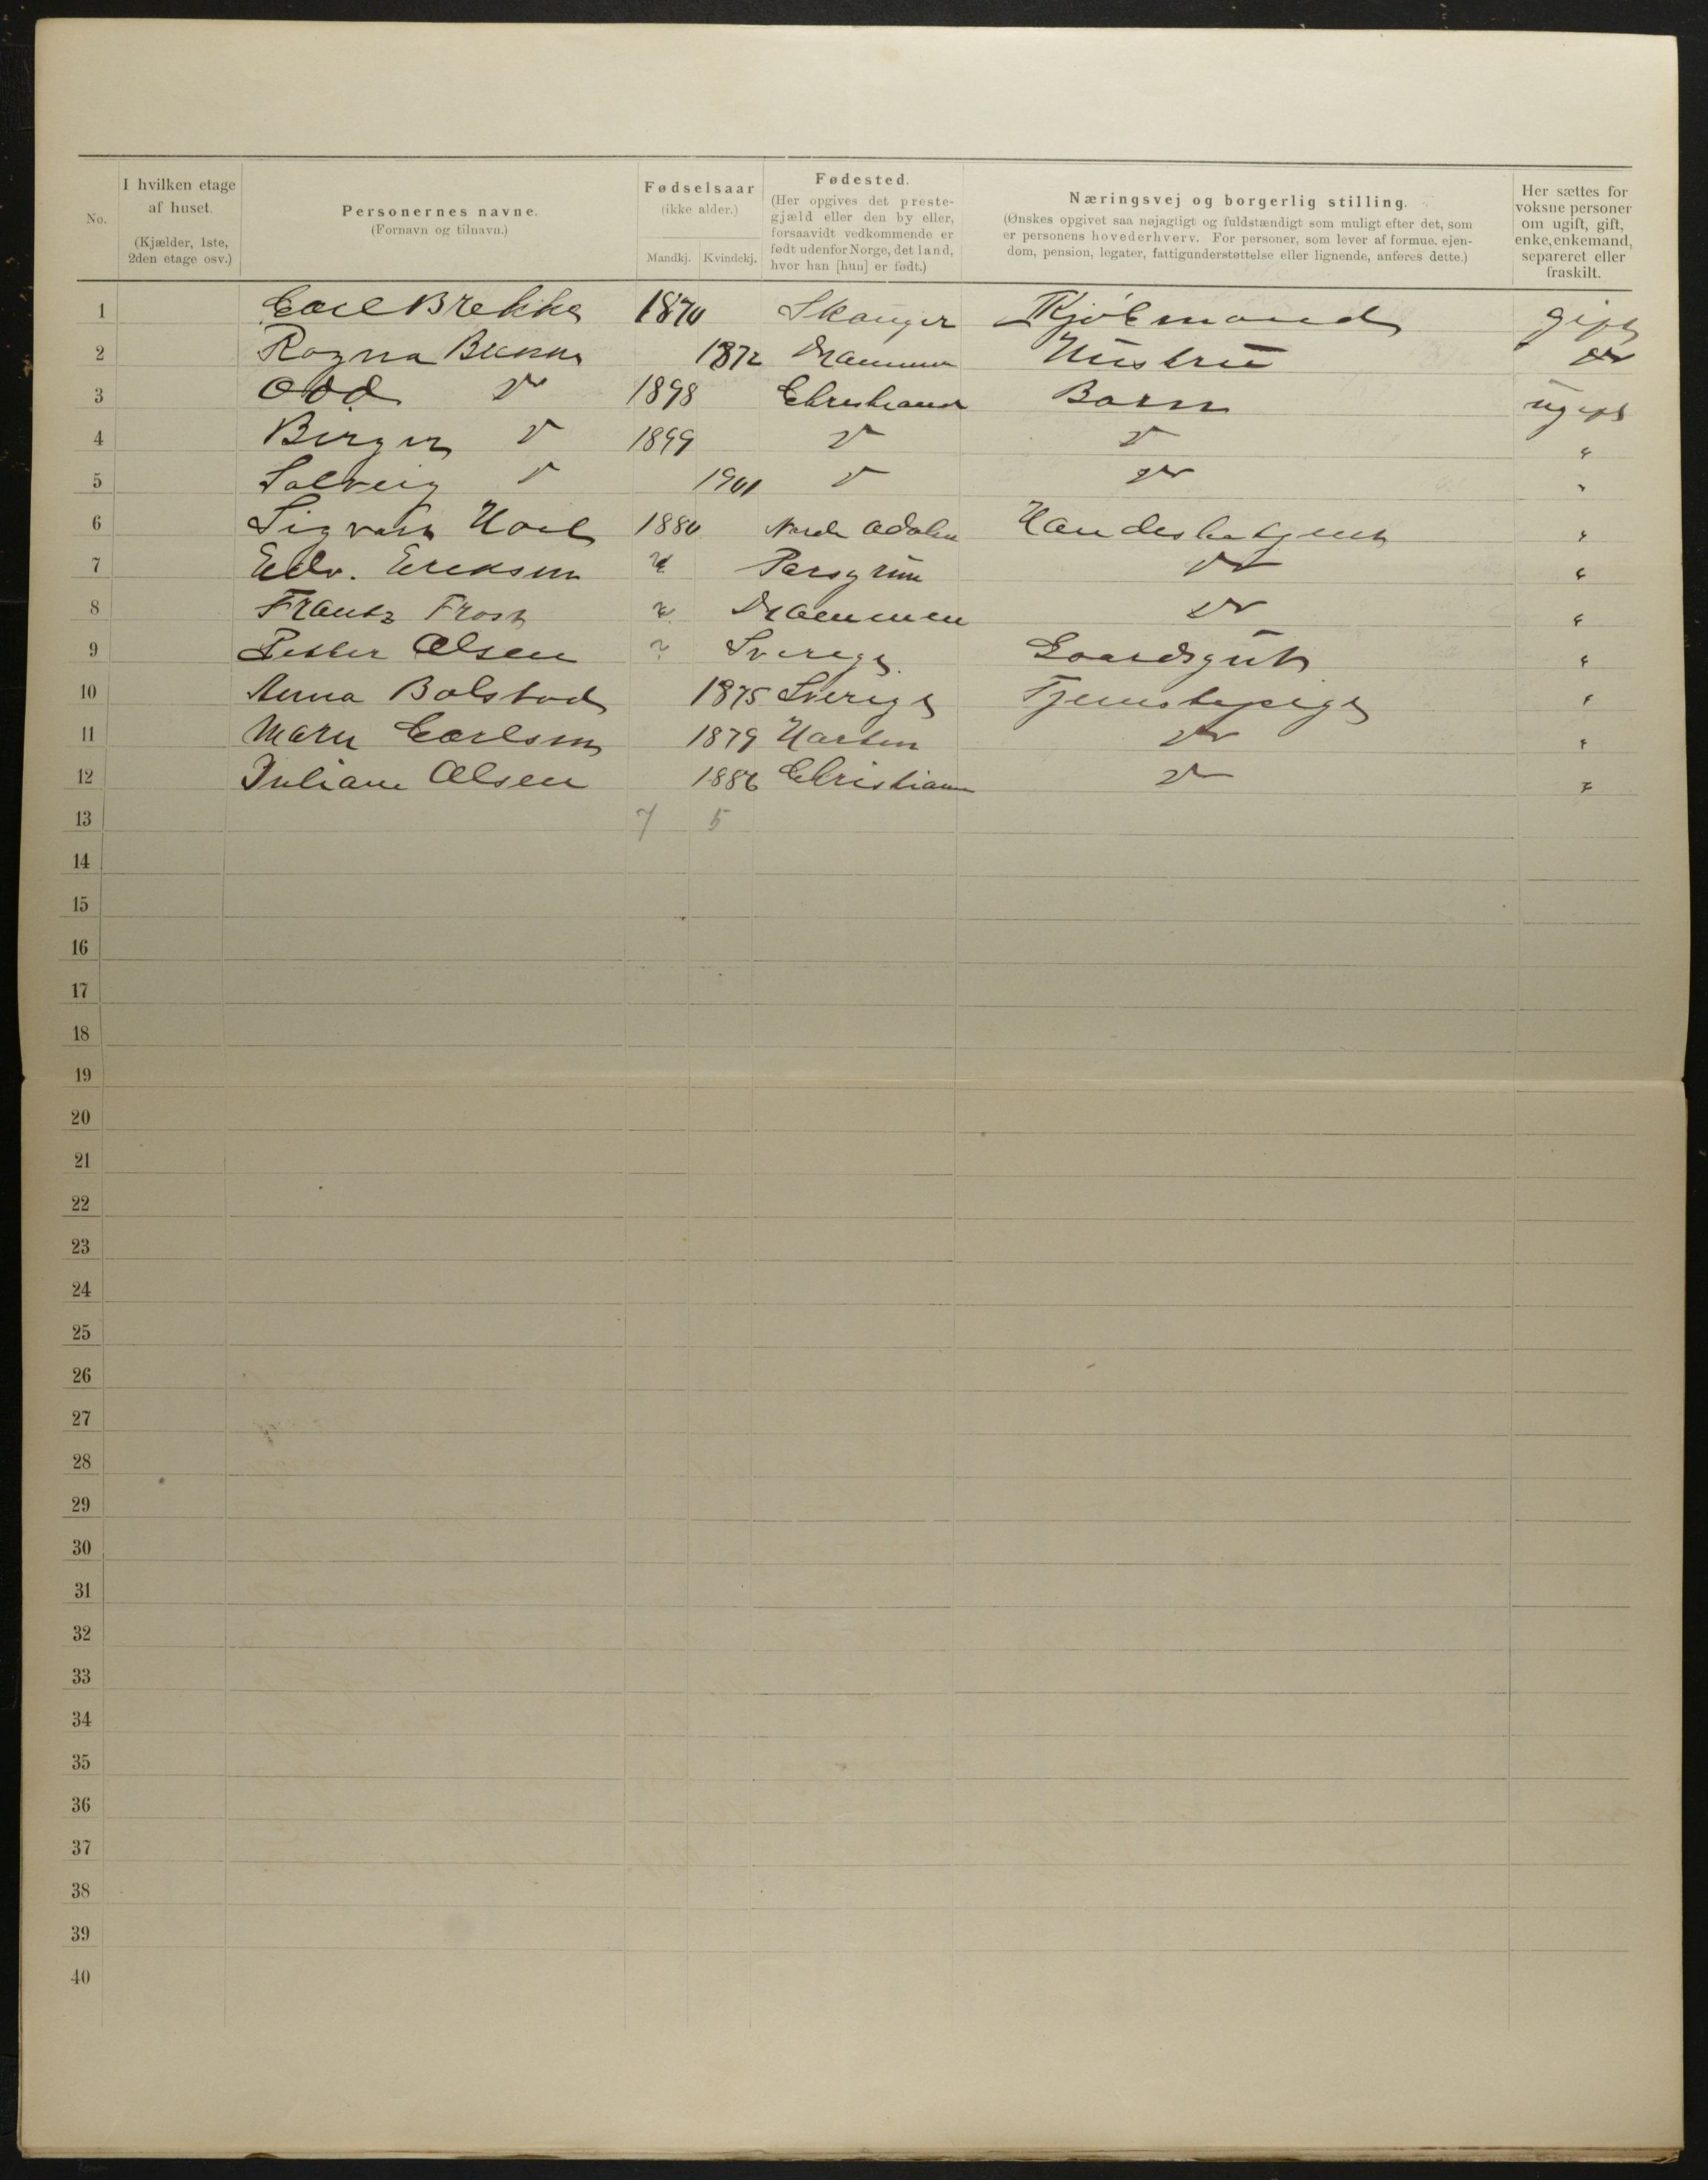 No.
I hvilken etage af huset. (Kjælder, 1ste, 2den etage osv.)
Personernes navne. (Fornavn og tilnavn.)
Fødselsaar (ikke alder.) Mandkj. Kvindekj.
Fødested. (Her opgives det prestegjæld eller den by eller, forsaavidt vedkommende er født udenfor Norge, det land, hvor han [hun] er født.)
Næringsvej og borgerlig stilling. (Ønskes opgivet saa nøjagtigt og fuldstændigt som muligt efter det, som er personens hovederhverv. For personer, som lever af formue, ejendom, pension, legater, fattigunderstøttelse eller lignende, anføres dette.)
Her sættes for voksne personer om ugift, gift, enke, enkemand, separeret eller fraskilt.
1 Carl Brekke 1870 Skauger Kjøbmand gift
2 Ragna 1872 Drammen Hustru do
3 Odd do 1898 Christiania Barn ugift
4 Birger do 1899 do do "
5 Solveig do 1901 do do "
6 Sigvart 1880 Nordre Odalen Handelsbetjent "
7 Edv. Eriksen " Porsgrun do "
8 Frantz Frost " Drammen do "
9 Petter Olsen " Sverige Gaardsgut "
10 Anna Bolstad 1875 Sverige Tjenestepige "
11 Marie Carlsen 1879 do "
12 Juliane Olsen 1886 Christiania do "
13 7 5
14
15
16
17
18
19
20
21
22
23
24
25
26
27
28
29
30
31
32
33
34
35
36
37
38
39
40